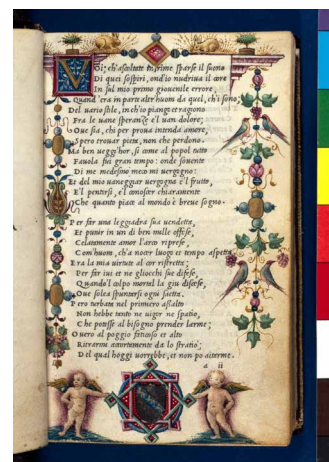 VOi; ch'ascoltate in rime sparse il suono
Di quei sospiri, ond'io nudriua il core
In sul mio primo giouenile errore,
Quand'era in parte altr'huom da quel, ch'i sono;
Del uario stile, in ch'io piango et ragono
Fra le uane speranze e'l uan dolore;
Oue sia, chi per proua intenda amore,
Spero trouar pieta, non che perdono.
Ma ben ueggi'hor, si come al popol tutto
Fauola fui gran tempo: onde souente
Di me medesmo meco mi uergogno:
Et del mio uaneggiar uergogna e'l frutto,
E'l pentirsi, e'l conoscer chiaramente
Che quanto piace al mondo è breue sogno.
Per far una leggiadra sua uendetta,
Et punir in un di ben mille offese,
Celatamente amor l'arco riprese,
Com'huom, ch'a nocer luogo et tempo aspetta.
Era la mia uirtute al cor ristretta;
Per far iui et ne gliocchi sue difese,
Quando'l colpo mortal la giu discese,
Oue solea spuntarsi ogni saetta.
Pero turbata nel primiero assalto
Non hebbe tanto ne uigor ne spatio,
Che potesse al bisogno prender l'arme;
Ouero al poggio faticoso et alto
Ritrarmi accortamente da lo stratio;
Del qual hoggi uorrebbe, et non po aitarme.
a ii